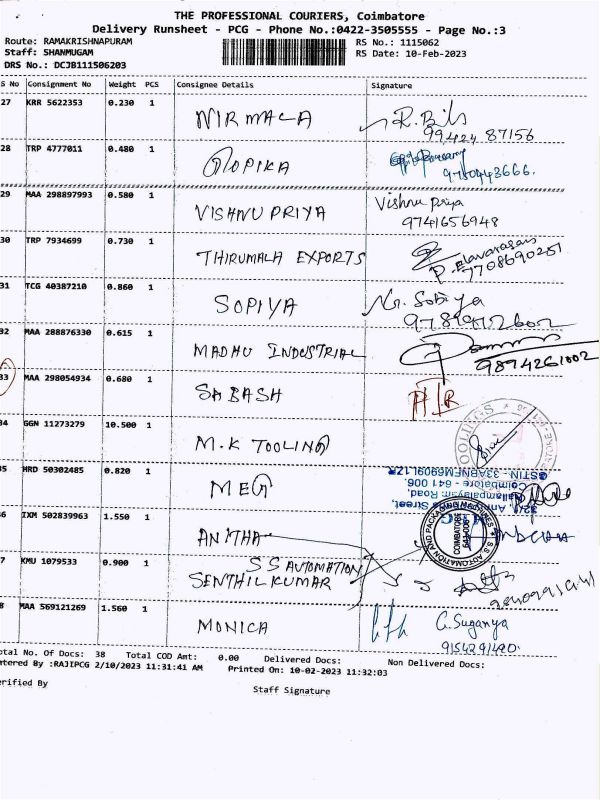 THE PROFESSIONAL COURIERS, Coimbatore
Delivery Runsheet - PCG - Phone No.:0422-3505555 - Page No.:3
Route: RAMAKRISHNAPURAM RS No.: 1115062
Staff: SHANMUGAM RS Date: 10-Feb-2023
DRS No.: DCJB111506203
S No Consignment No Weight PCS Consignee Details Signature
27 KRR 5622353 0.230 1 NIRMALA R. 99424 87156
28 TRP 4777011 0.480 1 GOPIKA
29 MAA 298897993 0.580 1 VISHNU PRIYA Vishnu Priya
9741656948
30 TRP 7934699 0.730 1 THIRUMALA EXPORTS P. Elavarasan
7708690251
31 TCG 40387210 0.860 1 SOPIYA Sobiya
32 MAA 288876330 0.615 1 MADHU INDUSTRIAL
9894261002
33 MAA 298054934 0.680 1 SABASH
34 GGN 11273279 10.500 1 M.K TOOLING
35 HRD 50302485 0.820 1 MEG
GSTIN:
Coimbatore - 641 006.
36 IXM 502839963 1.550 1 ANITHA
COIMBATORE
641 006
37 KMU 1079533 0.900 1 S S AUTOMATION
SENTHIL KUMAR
38 MAA 569121269 1.560 1 MONICA G. Suganya
9154291420
Total No. Of Docs: 38 Total COD Amt: 0.00 Delivered Docs: Non Delivered Docs:
Entered By :RAJIPCG 2/10/2023 11:31:41 AM Printed On: 10-02-2023 11:32:03
Verified By
Staff Signature